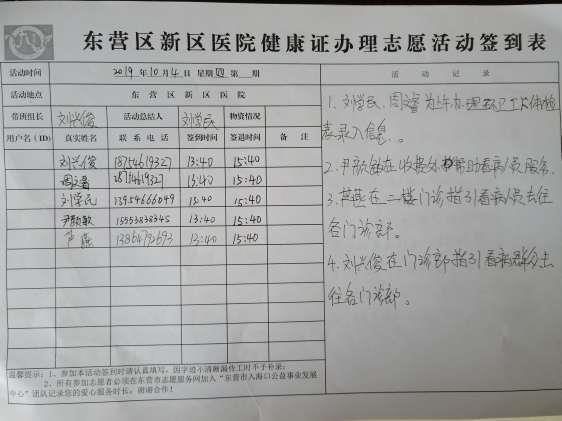 东营区新区医院健康证办理志愿活动签到表
活动时间 2019年10月4日 星期四 第 期
活动地点 东营区新区医院
带班组长 刘兴俊 活动总结人 刘学民 物资情况
用户名(ID) 真实姓名 联系电话 签到时间 签退时间 备注
刘兴俊 18754619327 13:40 15:40
周文睿 13:40 15:40
刘学民 13954666049 13:40 15:40
尹颜敏 15553838345 13:40 15:40
芦燕 13:40 15:40
温馨提示:1、参加本活动签到时请认真填写,因字迹不清晰漏传工时不予补录;
2、所有参加志愿者必须在东营市志愿服务网加入“东营市入海口公益事业发展
中心”团队记录您的爱心服务时长,谢谢合作!
活动记录
1.刘学民、周文睿为上午办理环卫工人体检
表录入信息。
2.尹颜敏在收费处帮助看病人员服务.
3.芦燕在二楼门诊指引看病人员去往
各门诊部。
4.刘兴俊在门诊部指引看病群众去
往各门诊部。